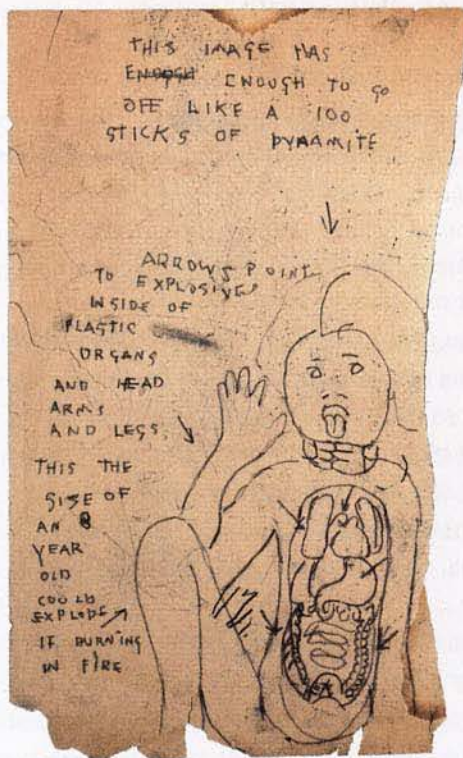 THIS IMAGE HAS
ENOUGH ENOUGH TO GO
OFF LIKE A 100
STICKS OF DYNAMITE
ARROWS POINT
TO EXPLOSIVE
INSIDE OF
PLASTIC
ORGANS
AND HEAD
ARMS
AND LEGS
THIS THE
SIZE OF
AN 8
YEAR
OLD
COULD
EXPLODE
IF BURNING
IN FIRE